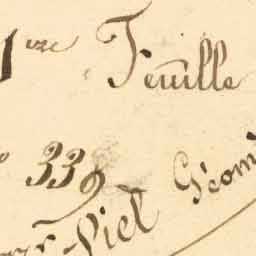 1ère Feuille
339
Piel Géom